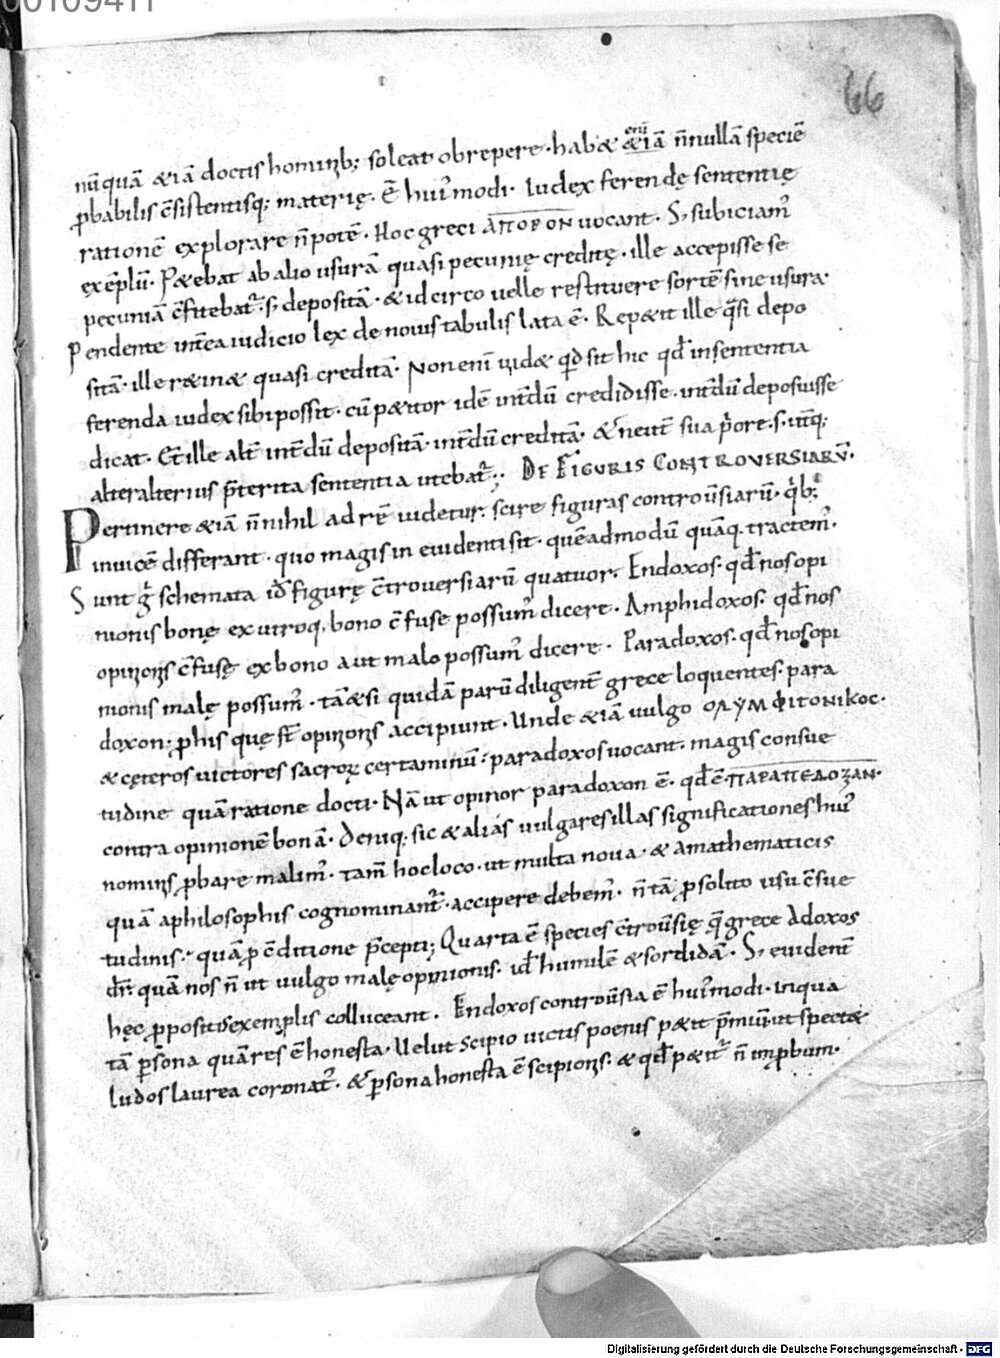 00109411
66
nūquā &iā doctis hominib; soleat obrepere. hab& eni &iā n̄nullā speciē
p̱babilis c̄sistentisq; materię. ē hui'modi. Iudex ferendę sententię
rationē explorare n̄ potē. Hoc greci ΑΠΟΡΟΝ uocant. S; subiciam'
exēplū. P&ebat ab alio usurā quasi pecunię creditę. ille accepisse se
pecuniā c̄fitebat'. s; depositā. & idcirco uelle restituere sortē sine usura.
Pendente int̄ea iudicio lex de nouis tabulis lata ē. Rep&it ille q̄si depo
sitā. ille r&in& quasi creditā. Non enī uid& qd sit hic qđ in sententia
ferenda iudex sibi possit. cū p&itor idē int̄dū credidisse. int̄dū deposuisse
dicat. Et ille alt̄ int̄dū depositā. int̄dū creditā. & neut̄ sua
alter alterius p̄terita sententia utebat'. DE FIGURIS CONTROVERSIARŪ.
Pertinere &iā n̄nihil ad rē uidetur. scire figuras controū̄siarū. q'b;
inuicē differant. quo magis in euidenti sit. quēadmodū quāq. tractem'.
Sunt g' schemata iđ figurę c̄trouersiarū quatuor. Endoxos. qđ nos opi
nionis bonę ex utroq. bono c̄fuse possum' dicere. Amphidoxos. qđ nos
opinionis c̄fusę ex bono aut malo possum' dicere. Paradoxos. qđ nos opi
nionis malę possum'. tā&si quidā parū diligent̄ grece loquentes. para
doxon; p̱ his quę st̄ opinionis accipiunt. Unde &iā uulgo ΟΛΥΜΦΙΤΟΝΙΚΟC.
& cęteros uictores sacroꝝ certaminū. paradoxos uocant. magis consue
tudine quā ratione docti. Nā ut opinor paradoxon ē. qđ ē ΠΑΡΑΠΕΔΟΞΑΝ.
contra opinionē bonā. Deniq; sic & alias uulgares illas significationes hui'
nominis p̱bare malim'. tam̄ hoc loco. ut multa noua. & a mathematicis
quā a philosophis cognominant'. accipere debem'. n̄ tā p̱ solito usu c̄sue
tudinis. quā p̱ c̄ditione p̄cepti; Quarta ē species c̄troū̄się q̄ grece Adoxos
dr̄. quā nos n̄ ut uulgo malę opinionis. iđ humilē & sordidā. S; euident̄
hęc p̱positis exemplis colluceant. Endoxos controū̄sia ē hui'modi. in qua
tā p̱sona quā res ē honesta. Uelut Scipio uictis poenis p&it p̄miū ut spect&
ludos laurea coronat'. & p̱sona honesta ē scipionis. & qđ p&it' n̄ imp̱bum.
Digitalisierung gefördert durch die Deutsche Forschungsgemeinschaft - DFG